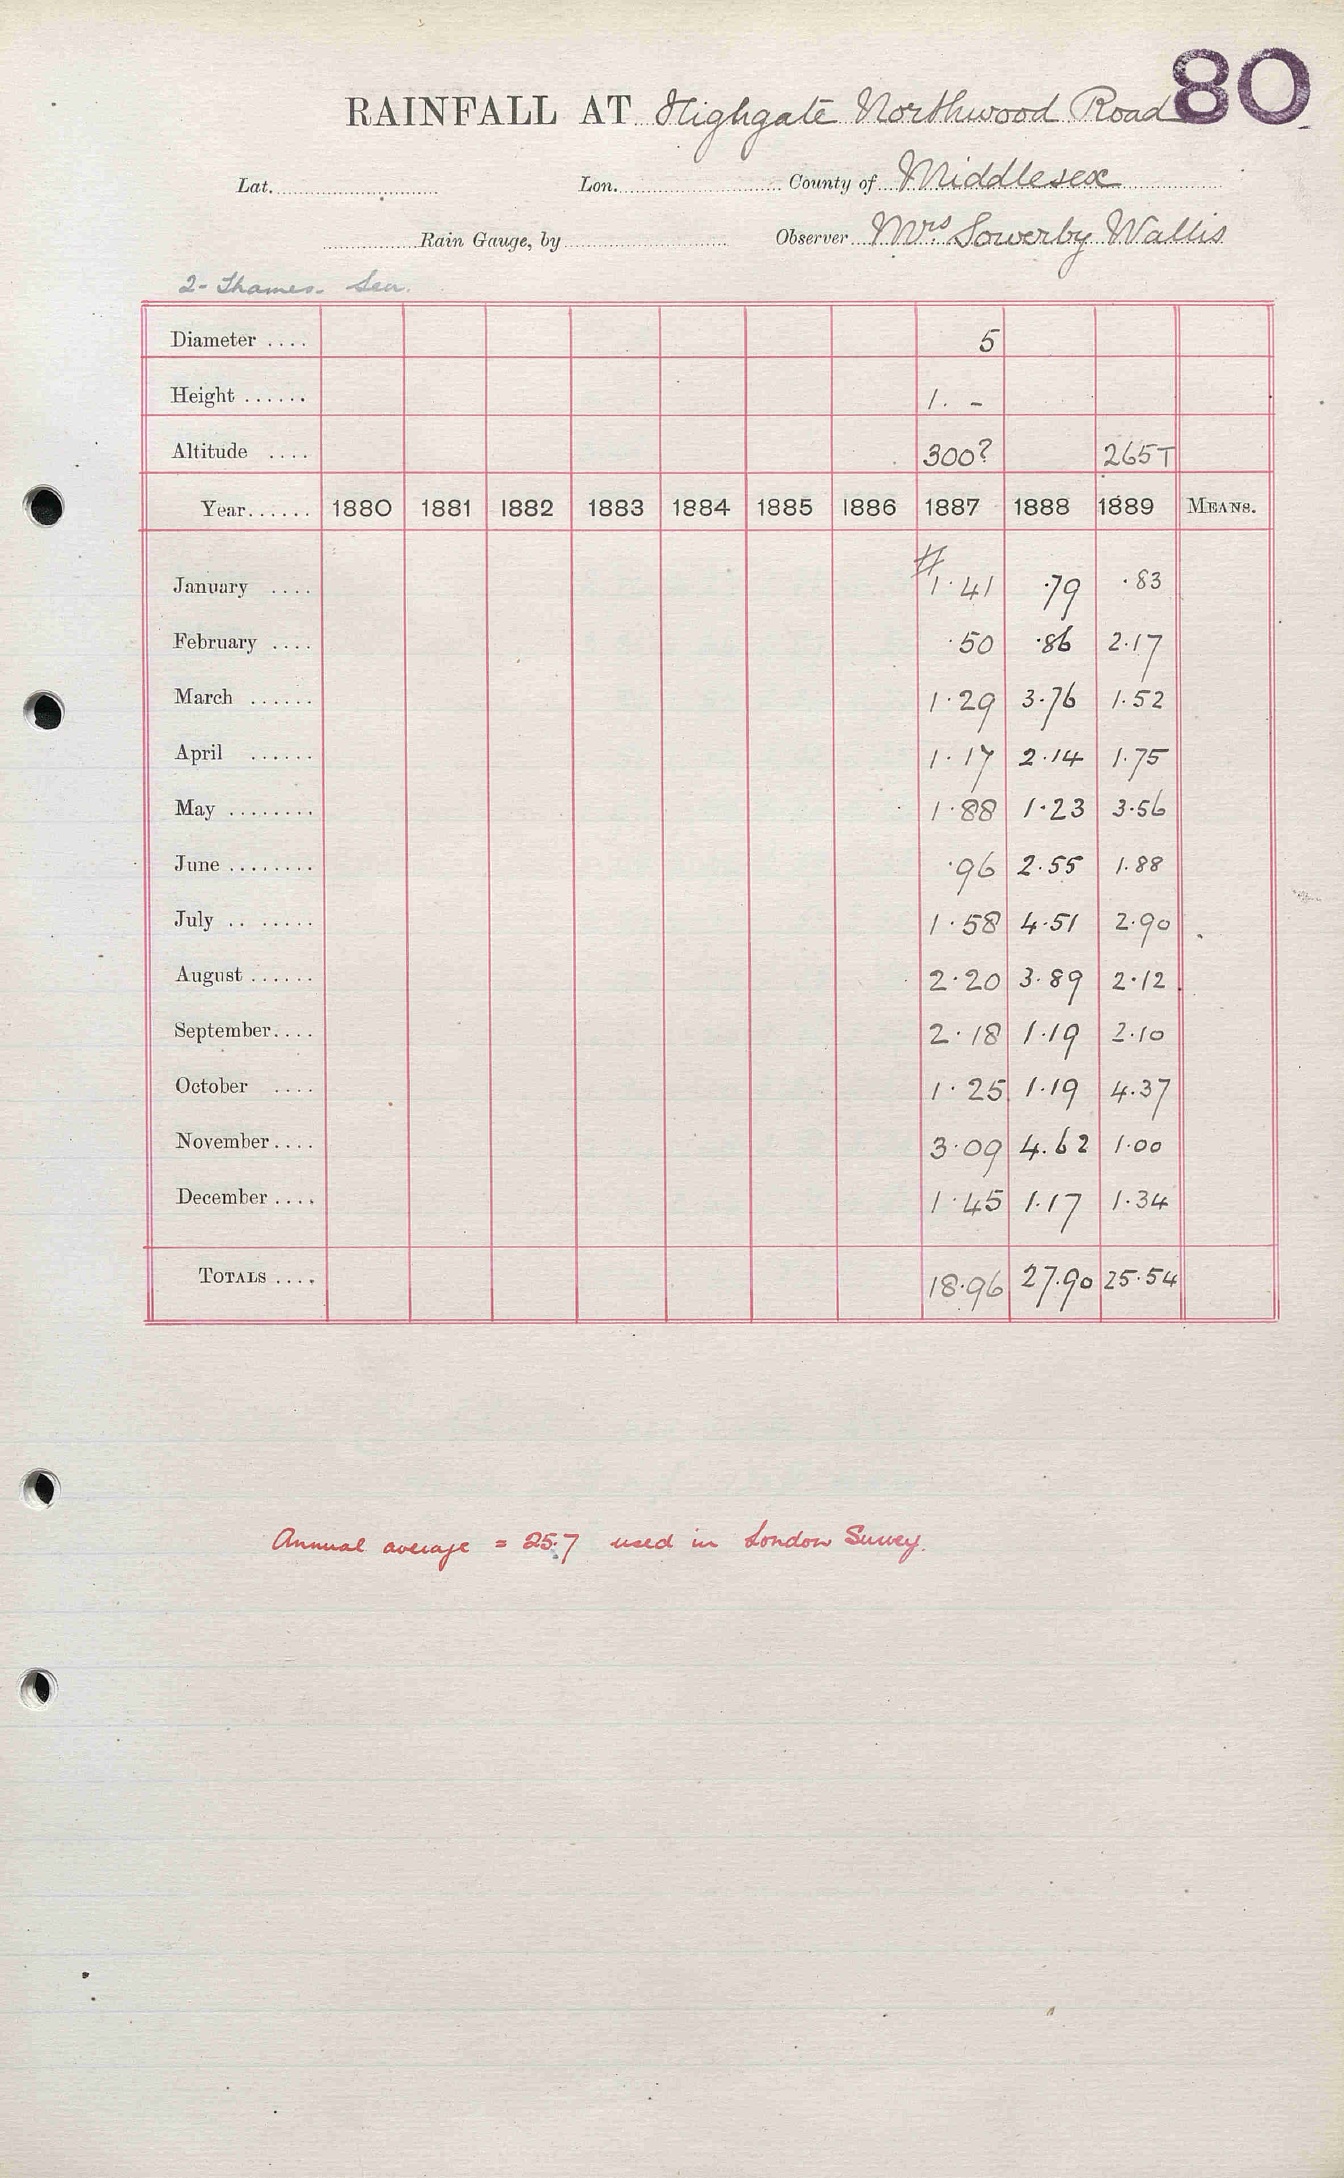 80
RAINFALL AT Highgate Northwood Road
Lat. Lon. County of Middlesex
Rain Gauge, by Observer Mrs Sowerby Wallis
2- Thames- Sea.
Diameter .... 5
Height ...... 1. -
Altitude .... 300? 265T
Year...... 1880 1881 1882 1883 1884 1885 1886 1887 1888 1889 MEANS.
#
January .... 1.41 .79 .83
February .... .50 .86 2.17
March ...... 1.29 3.76 1.52
April ...... 1.17 2.14 1.75
May ........ 1.88 1.23 3.56
June ........ .96 2.55 1.88
July .. ...... 1.58 4.51 2.90
August ...... 2.20 3.89 2.12
September.... 2.18 1.19 2.10
October .... 1.25 1.19 4.37
November.... 3.09 4.62 1.00
December .... 1.45 1.17 1.34
TOTALS .... 18.96 27.90 25.54
Annual average = 25.7 used in London Survey.